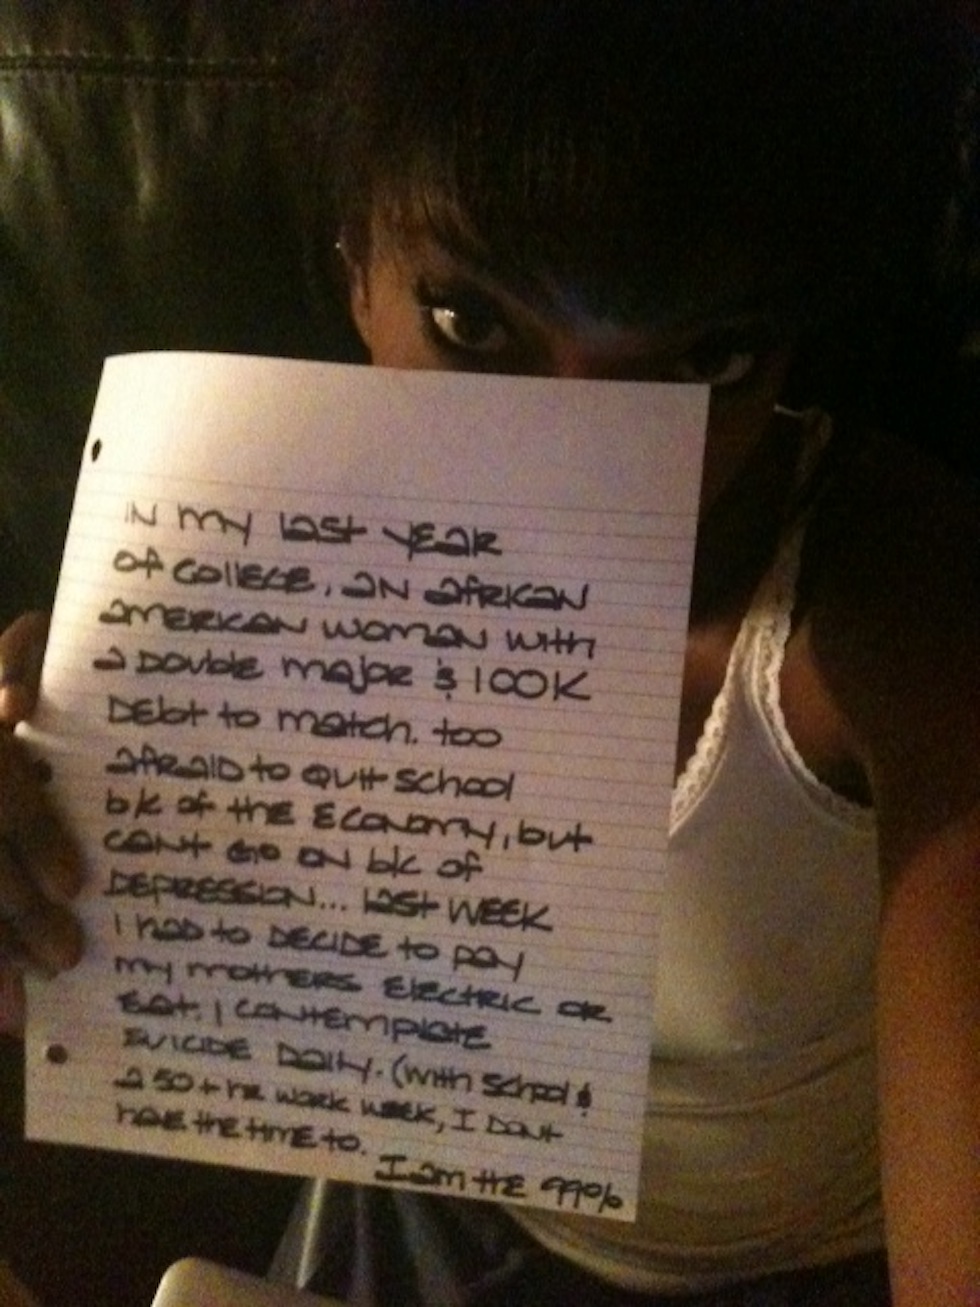 IN my last year
of college, an african
american woman with
a double major & 100K
Debt to match. too
afraid to quit school
b/c of the economy, but
cant go on b/c of
depression... last week
I had to decide to pay
my mothers electric or
eat. I contemplate
suicide daily. (with school &
a 50+ hr work week, I dont
have the time to.
I am the 99%